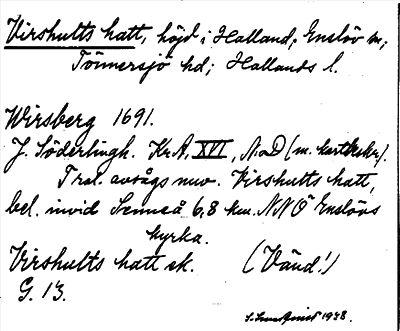 Virshults hatt, höjd i Halland; Enslöv sn;
Tönnersjö hd; Hallands l.
Wirsberg 1691.
J. Söderlingh. KrA, XVI, N:o D (m. kartbeskr).
Trol. avsågs nuv. Virshults hatt,
bel. invid Sennså 6,8 km. NNÖ Enslövs
kyrka.
Virshults hatt ek. (Vänd!)
G. 13.
1938.